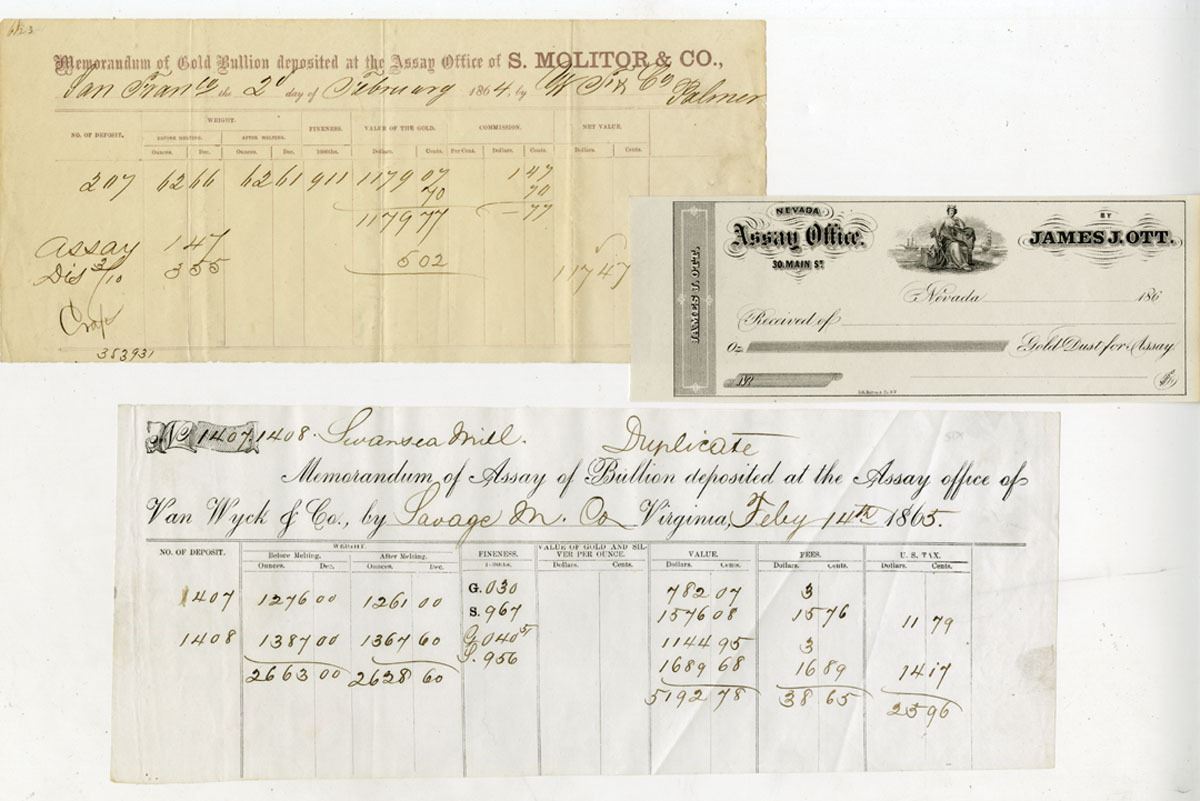 Memorandum of Gold Bullion deposited at the Assay Office of S. MOLITOR & CO.,
San Franco the 2d day of February 1864. by W. F. & Co Palmer
NO. OF DEPOSIT. WEIGHT. FINENESS. VALUE OF THE GOLD. COMMISSION. NET VALUE.
BEFORE MELTING. AFTER MELTING.
Ounces. Dec. Ounces. Dec. 1000ths. Dollars. Cents. Per Cent. Dollars. Cents. Dollars. Cents.
207 62 66 62 61 911 1179 07 1 47
70 70
1179 77 - 77
Assay 1 47
Dis 3/10 3 55 5 02 1174 7
383931
NEVADA
Assay Office.
30. MAIN ST.
BY
JAMES J. OTT.
JAMES J. OTT.
Nevada 186
Received of
Oz. Gold Dust for Assay
No. 1407.1408. Swansea Mill. Duplicate
Memorandum of Assay of Bullion deposited at the Assay office of
Van Wyck & Co., by Savage M. Co Virginia, Feby 14th 1865.
NO. OF DEPOSIT. WEIGHT. FINENESS. VALUE OF GOLD AND SILVER PER OUNCE. VALUE. FEES. U. S. TAX.
Before Melting. After Melting.
Ounces. Dec. Ounces. Dec. Dollars. Cents. Dollars. Cents. Dollars. Cents. Dollars. Cents.
1407 1276 00 1261 00 G. 030 782 07 3
S. 967 1576 08 15 76 11 79
1408 1387 00 1367 60 G. 040 5 1144 95 3
S. 956 1689 68 16 89 14 17
2663 00 2628 60 5192 78 38 65 25 96